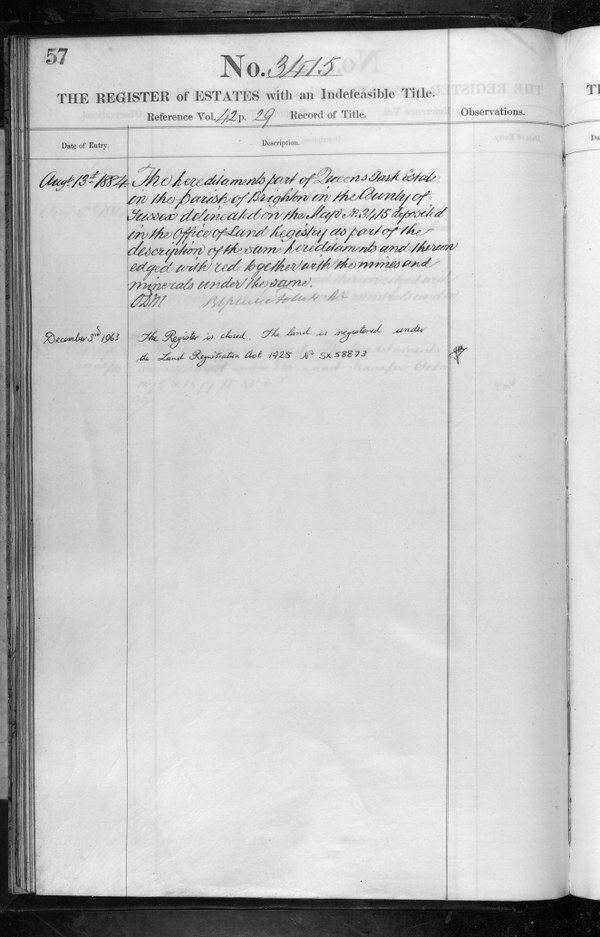 57
No. 3415
THE REGISTER of ESTATES with an Indefeasible Title.
Reference Vol. 42 p. 29 Record of Title.
Observations.
Date of Entry.
Description.
Augt. 13th 1884 The hereditaments part of Queens Park Estate
in the parish of Brighton in the County of
Sussex delineated on the Map No. 3415 deposited
in the Office of Land Registry as part of the
description of the same hereditaments and thereon
edged with red together with the mines and
minerals under the same.
December 3rd 1963 The Register is closed. The land is registered under
the Land Registration Act 1925 No SX58873